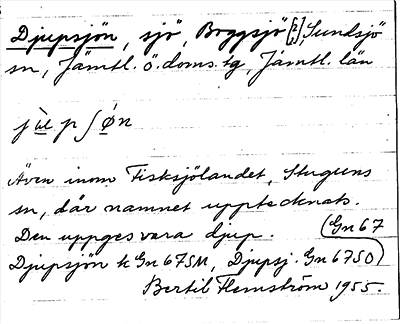 Djupsjön, sjö, Boggsjö [?], Sundsjö
sn, Jämtl. ö. doms. tg, Jämtl. län
Även inom Fisksjölandet, Stuguns
sn, där namnet upptecknats.
Den uppges vara djup. (Gn 67
Djupsjön k Gn 67 SM, Djupsj. Gn 67 SO)
Bertil Flemström 1955.